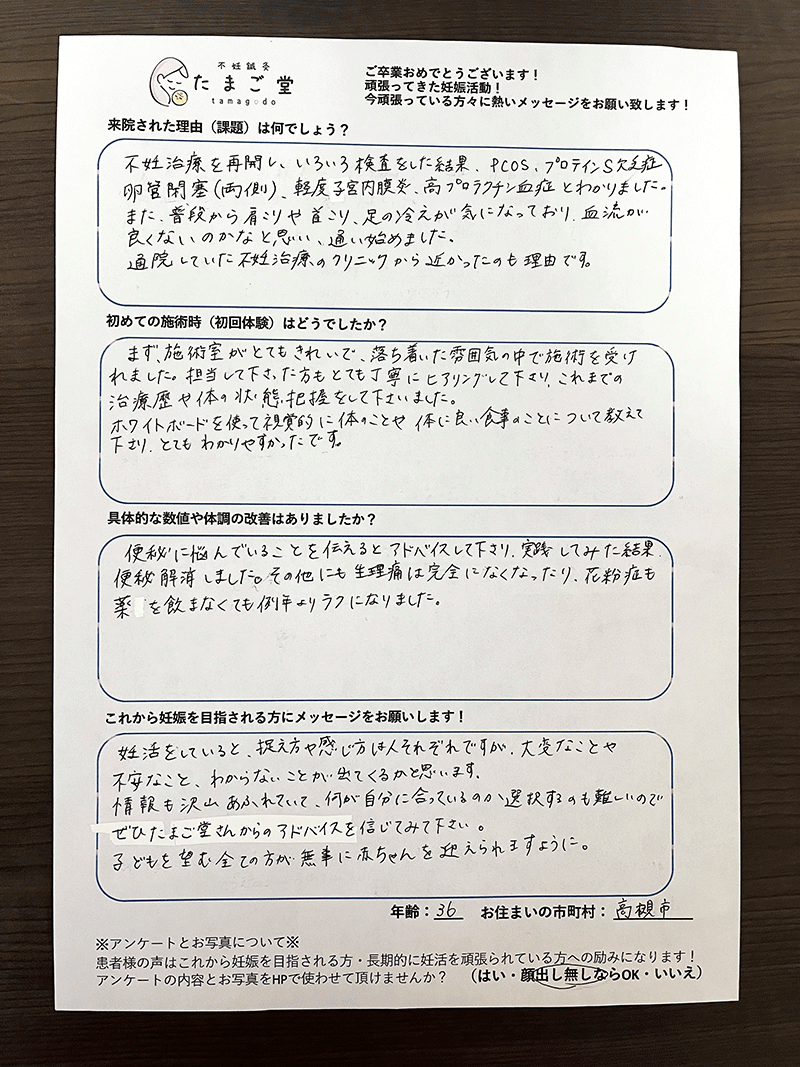 不妊鍼灸
たまご堂
tamagodo
ご卒業おめでとうございます！
頑張ってきた妊娠活動！
今頑張っている方々に熱いメッセージをお願い致します！
来院された理由（課題）は何でしょう？
不妊治療を再開し、いろいろ検査をした結果、PCOS、プロテインS欠乏症
卵管閉塞(両側)、軽度子宮内膜炎、高プロラクチン血症とわかりました。
また、普段から肩こりや首こり、足の冷えが気になっており、血流が
良くないのかなと思い、通い始めました。
通院していた不妊治療のクリニックから近かったのも理由です。
初めての施術時（初回体験）はどうでしたか？
まず、施術室がとてもきれいで、落ち着いた雰囲気の中で施術を受け
れました。担当して下さった方もとても丁寧にヒアリングして下さり、これまでの
治療歴や体の状態把握をして下さいました。
ホワイトボードを使って視覚的に体のことや体に良い食事のことについて教えて
下さり、とてもわかりやすかったです。
具体的な数値や体調の改善はありましたか？
便秘に悩んでいることを伝えるとアドバイスして下さり、実践してみた結果、
便秘解消しました。その他にも生理痛は完全になくなったり、花粉症も
薬を飲まなくても例年よりラクになりました。
これから妊娠を目指される方にメッセージをお願いします！
妊活をしていると、捉え方や感じ方は人それぞれですが、大変なことや
不安なこと、わからないことが出てくるかと思います。
情報も沢山あふれていて、何が自分に合っているのか選択するのも難しいので
ぜひたまご堂さんからのアドバイスを信じてみて下さい。
子どもを望む全ての方が無事に赤ちゃんを迎えられますように。
年齢：36 お住まいの市町村：高槻市
※アンケートとお写真について※
患者様の声はこれから妊娠を目指される方・長期的に妊活を頑張られている方への励みになります！
アンケートの内容とお写真をHPで使わせて頂けませんか？ （はい・顔出し無しならOK・いいえ）